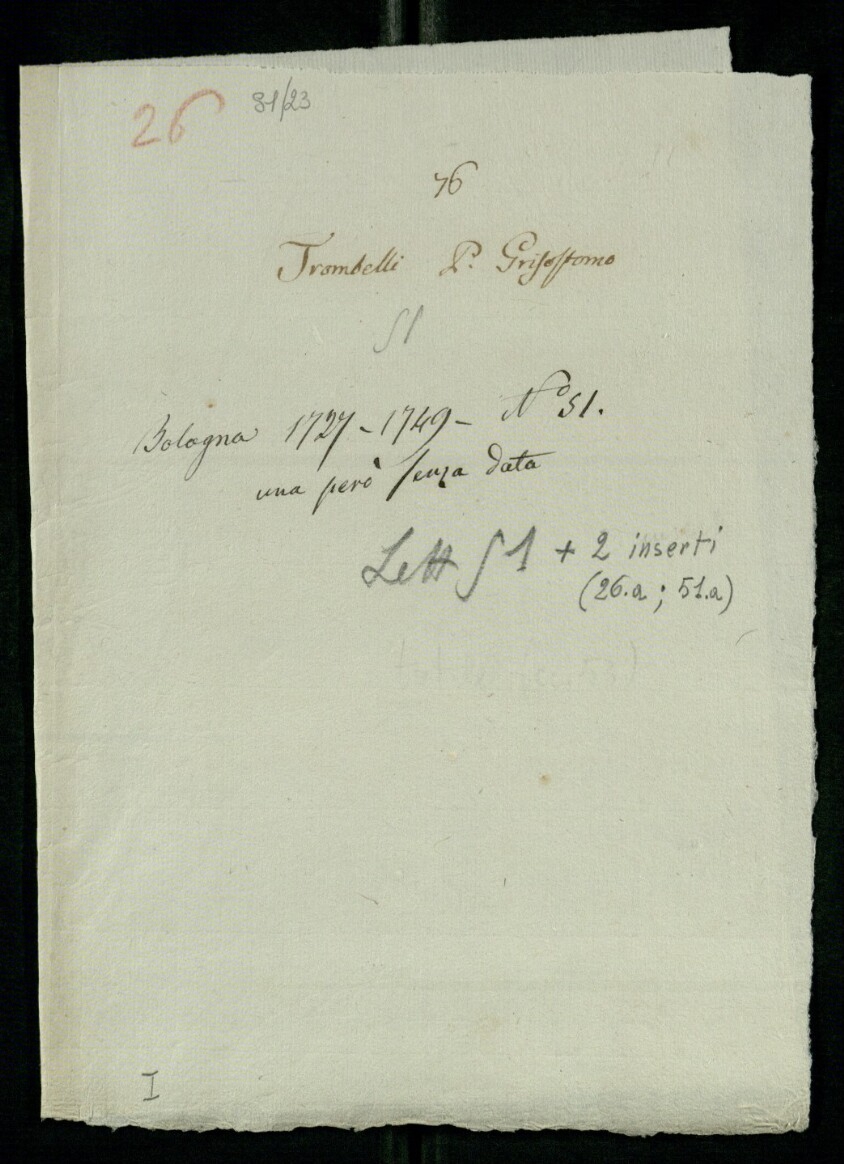 26 81/23
76
Trombelli P. Grisostomo
51
Bologna 1727-1749- N.º 51.
una però senza data
Lett 51 + 2 inserti
(26.a ; 51.a)
I